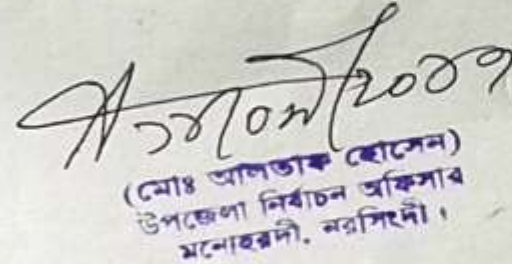 (মোঃ আলতাফ হোসেন)
উপজেলা নির্বাচন অফিসার
মনোহরদী, নরসিংদী।